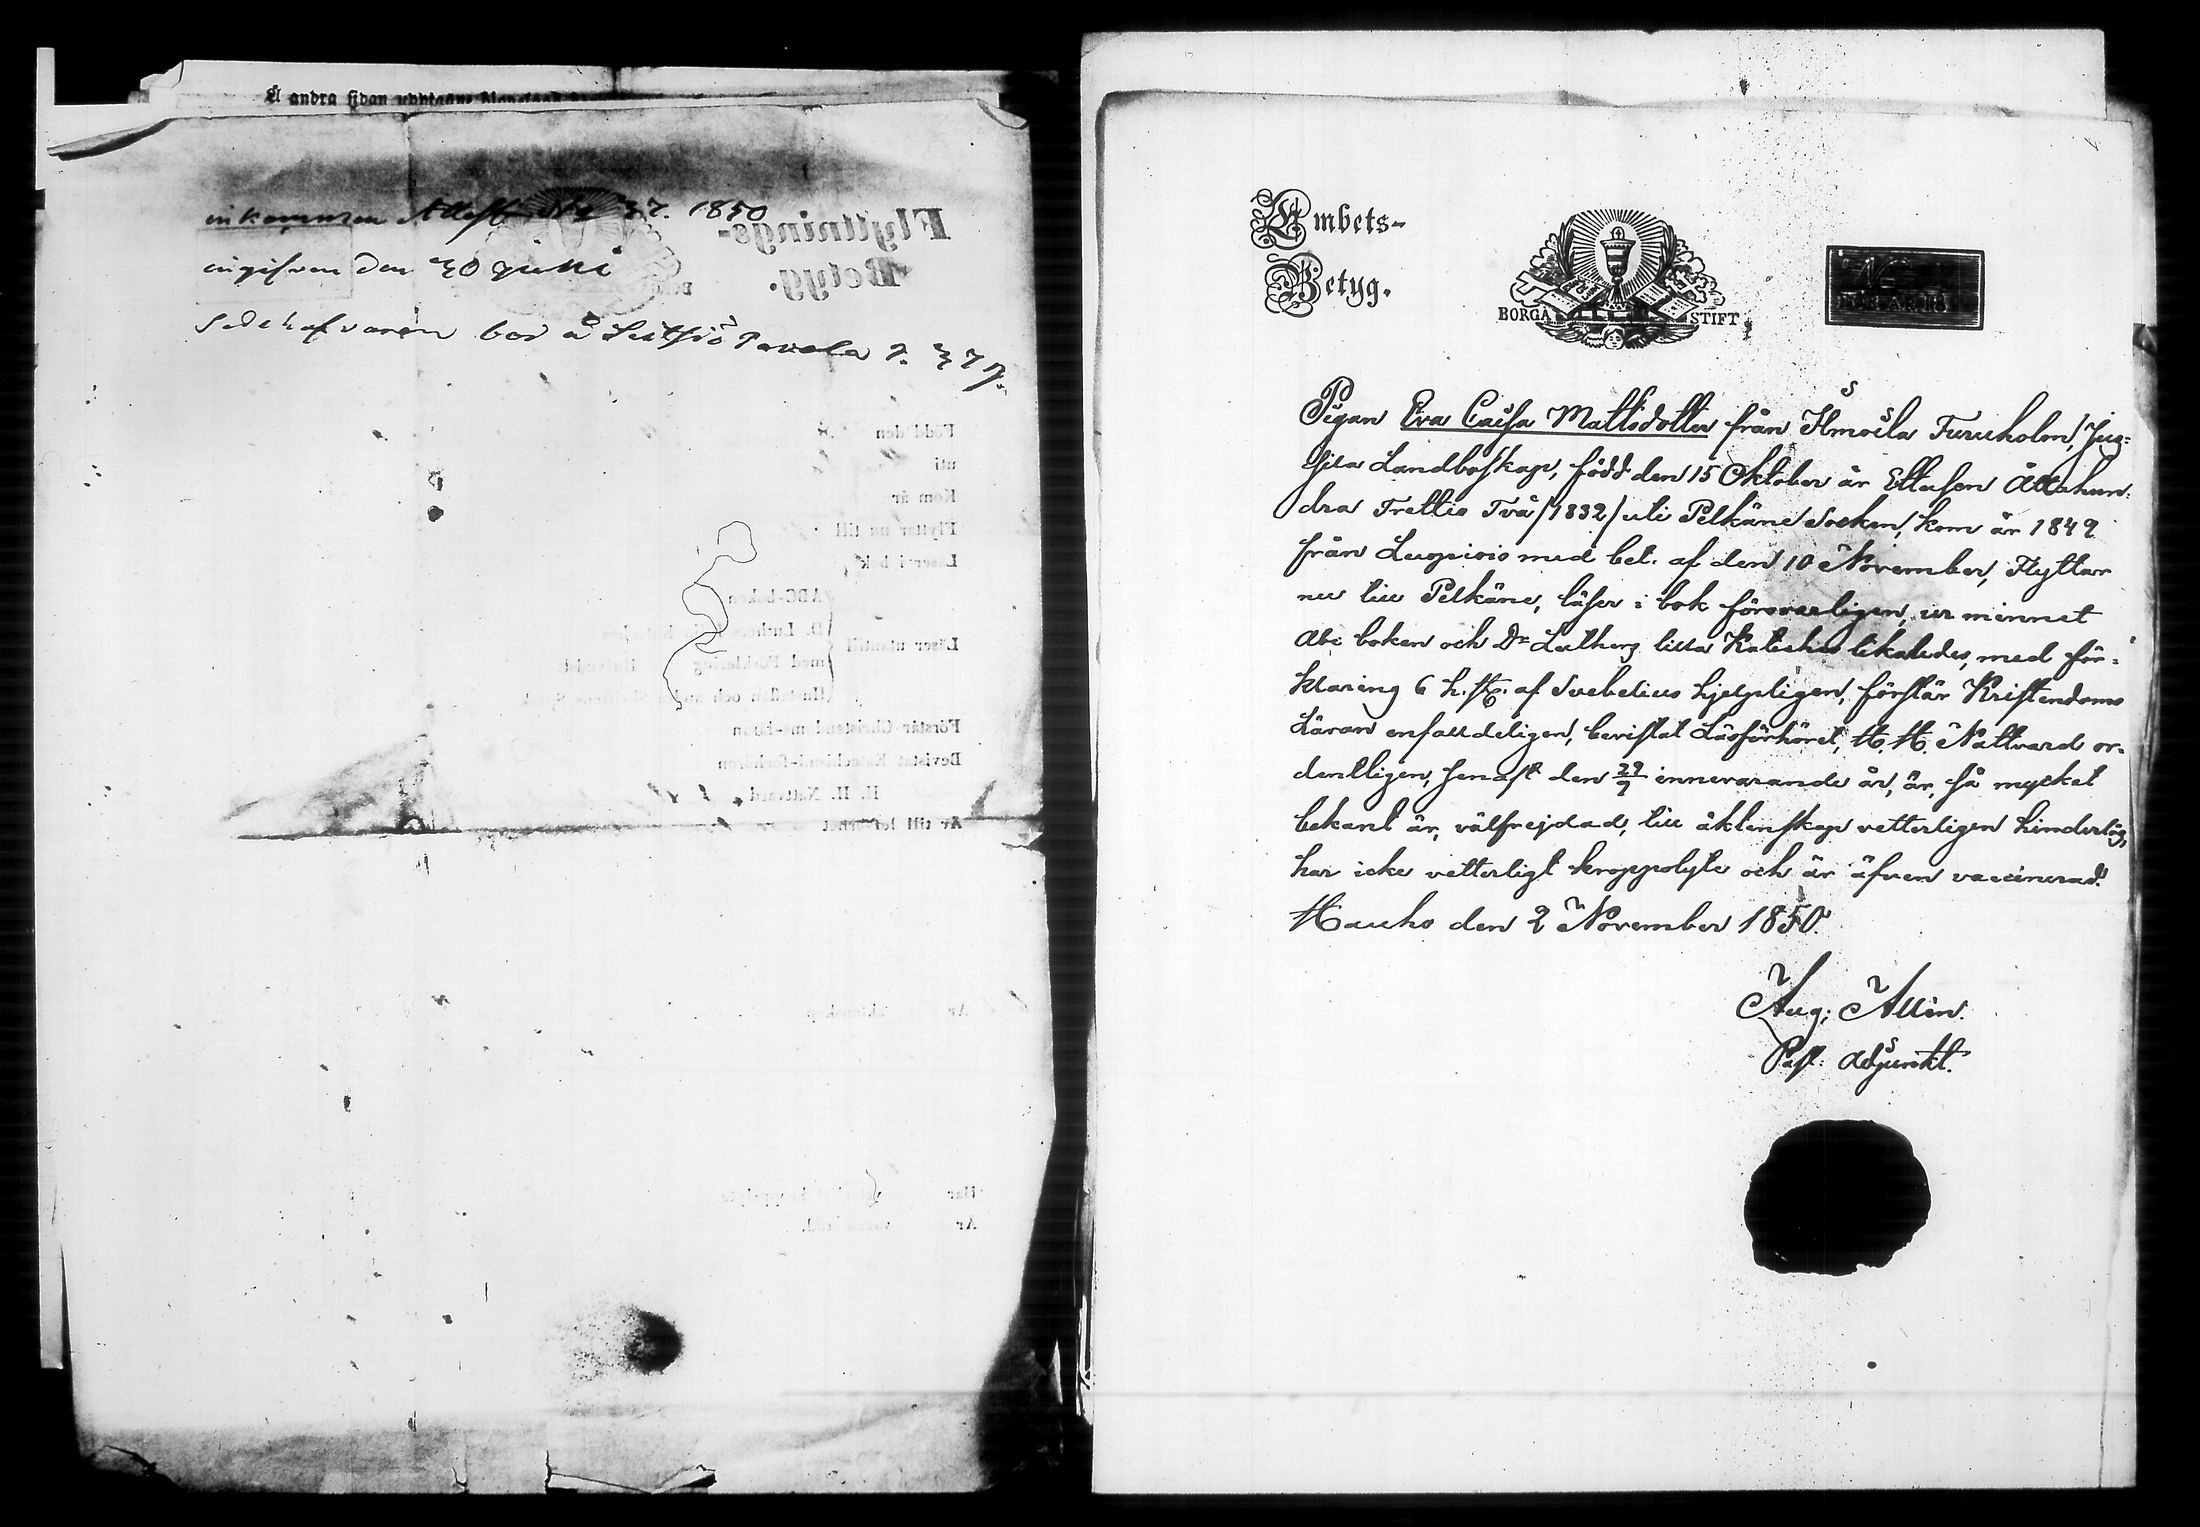 Å andra sidan upptagne
inkommen Attest No 37. 1850
ingifven den 30 juni
bor å Seitsiö Pavola
Flyttnings-
Betyg.
Född den
uti
Kom år
Flyttar nu till
Läser i bok
ABC-boken
D. Luthers
Läser utantill
med Förklaring
Hustaflan och
Förstår Christendoms-läran
Bevistat Katechismi-förhören
H. H. Nattvard
Är till lefvernet
Är äktenskap
Har kroppslyte
Är vaccinerad.
Embets-
Betyg.
BORGÅ STIFT
Pigan Eva Caisa Mattsdotter från Ilmoila Furuholm, Jus-
sila Landboskap, född den 15 Oktober år Ettusen Åttahun-
dra Trettio Två /1832/ uti Pelkäne Socken, kom år 1849
från Luopiois med bet. af den 10 November, Flyttar
nu till Pelkäne, läser i bok försvarligen, ur minnet
Abc boken och Dr Luthers lilla Kateches likaledes, med för-
klaring 6 h. st. af Svebelius hjelpligen, förstår Kristendoms
Läran enfalldeligen, bevistat Läsförhöret, H. H. Nattvard or-
dentligen, senast den 29/7 innevarande år, är, så mycket
bekant är, välfrejdad, till äktenskap vetterligen hinderlös,
har icke vetterligt kroppslyte och är äfven vaccinerad.
Hauho den 2 November 1850.
Aug: Allén.
Past: adjunkt.